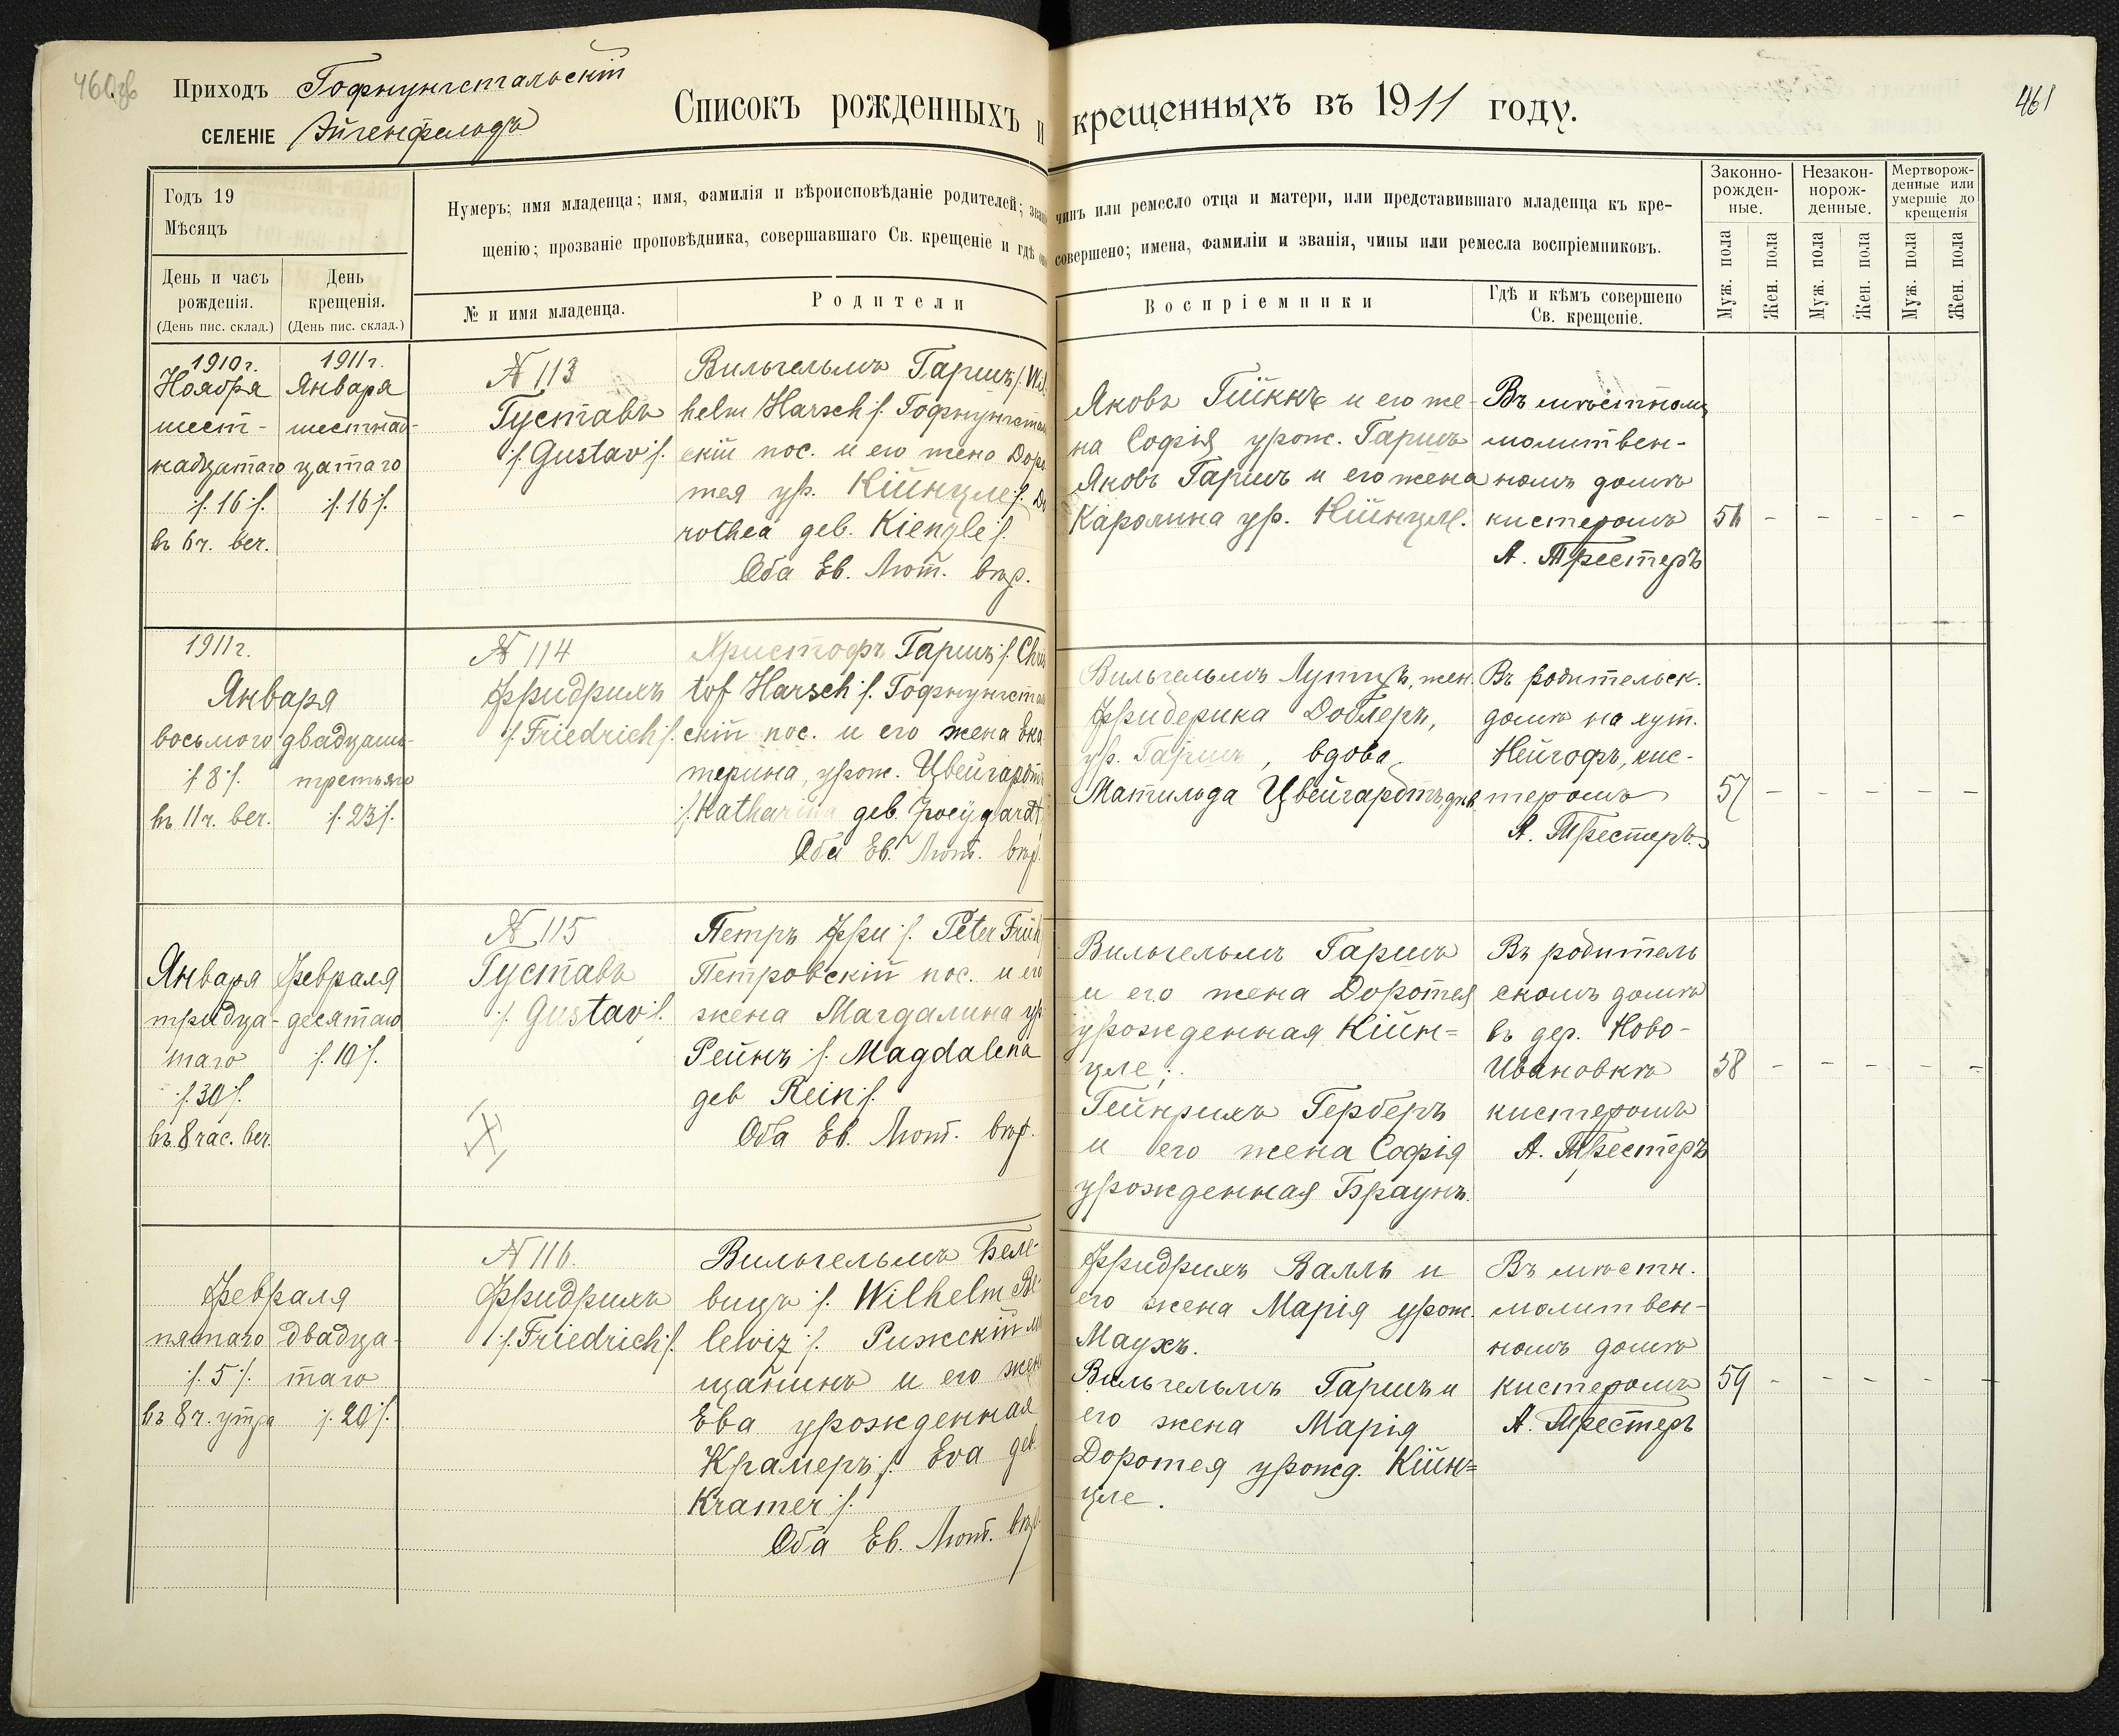 460об
Приходъ Гофнунгстальскій
СЕЛЕНІЕ Эйгенфельдъ
Списокъ рожденныхъ и крещенныхъ въ 1911 году.
461
Годъ 19
Мѣсяцъ
День и часъ рожденія.
(День пис. склад.)
День крещенія.
(День пис. склад.)
Нумеръ; имя младенца; имя, фамилія и вѣроисповѣданіе родителей; чинъ или ремесло отца и матери, или представившаго младенца къ кре-
щенію; прозваніе проповѣдника, совершавшаго Св. крещеніе и гдѣ совершено; имена, фамиліи и званія, чины или ремесла воспріемниковъ.
№ и имя младенца.
Родители
Воспріемники
Гдѣ и кѣмъ совершено
Св. крещеніе.
Законно-
рожден-
ные.
Незакон-
норож-
денные.
Мертворож-
денные или
умершіе до
крещенія
Муж. пола
Жен. пола
Муж. пола
Жен. пола
Муж. пола
Жен. пола
1910 г.
Ноября
шест-
надцатаго
/:16:/
въ 6 ч. веч.
1911 г.
Января
шестнад-
цатаго
/:16:/
№ 113
Густавъ
/:Gustav:/
Вильгельмъ Гаршъ /:Wil
helm Harsch:/ Гофнунгсталь
скій пос. и его жена Доро
тея ур. Кіинцле /:Do
rothea geb. Kienzle:/
Оба Ев. Лют. вѣр.
Яковъ Гіиккъ и его же-
на Софія урож. Гаршъ
Яковъ Гаршъ и его жена
Каролина ур. Кіинцле.
Въ мѣстномъ
молитвен-
номъ домѣ
кистеромъ
А. Трестеръ
56 - - - - -
1911 г.
Января
восьмого
/:8:/
въ 11 ч. веч.
двадцать
третьяго
/:23:/
№ 114
Фридрихъ
/:Friedrich:/
Христофъ Гаршъ /:Chris
tof Harsch:/ Гофнунгсталь
скій пос. и его жена Ека
терина, урож. Цвейгардтъ
/:Katharina geb. Zweygardt
Оба Ев. Лют. вѣр.
Вильгельмъ Лутцъ, жен.
Фридерика Доблеръ,
ур. Гаршъ, вдова
Матильда Цвейгардтъ, дѣв.
Въ родительск.
домѣ на хут.
Нейгофъ, кис-
теромъ
А. Трестеръ.
57 - - - - -
Января
тридца-
таго
/:30:/
въ 8 час. веч.
Февраля
десятаго
/:10:/
№ 115
Густавъ
/:Gustav:/
Петръ Фри /:Peter Früh
Петровскій пос. и его
жена Магдалина ур
Рейнъ /:Magdalena
geb Rein:/
Оба Ев. Лют. вѣр.
Вильгельмъ Гаршъ
и его жена Доротея
урожденная Кіин=
цле;
Гейнрихъ Герберъ
и его жена Софія
урожденная Браунъ.
Въ родитель
скомъ домѣ
въ дер. Ново-
Ивановкѣ
кистеромъ
А. Трестеръ
58 - - - - -
Февраля
пятаго
/:5:/
въ 8 ч. утра
двадца-
таго
/:20:/
№ 116.
Фридрихъ
/:Friedrich:/
Вильгельмъ Беле-
вицъ /:Wilhelm Be-
lewiz:/ Рижскій мѣ
щанинъ и его жена
Ева урожденная
Крамеръ /:Eva geb.
Kramer:/
Оба Ев. Лют. вѣр.
Фридрихъ Валль и
его жена Марія урож.
Маухъ.
Вильгельмъ Гаршъ и
его жена Марія
Доротея урожд. Кіин=
цле.
Въ мѣстн.
молитвен-
номъ домѣ
кистеромъ
А. Трестеръ
59 - - - - -